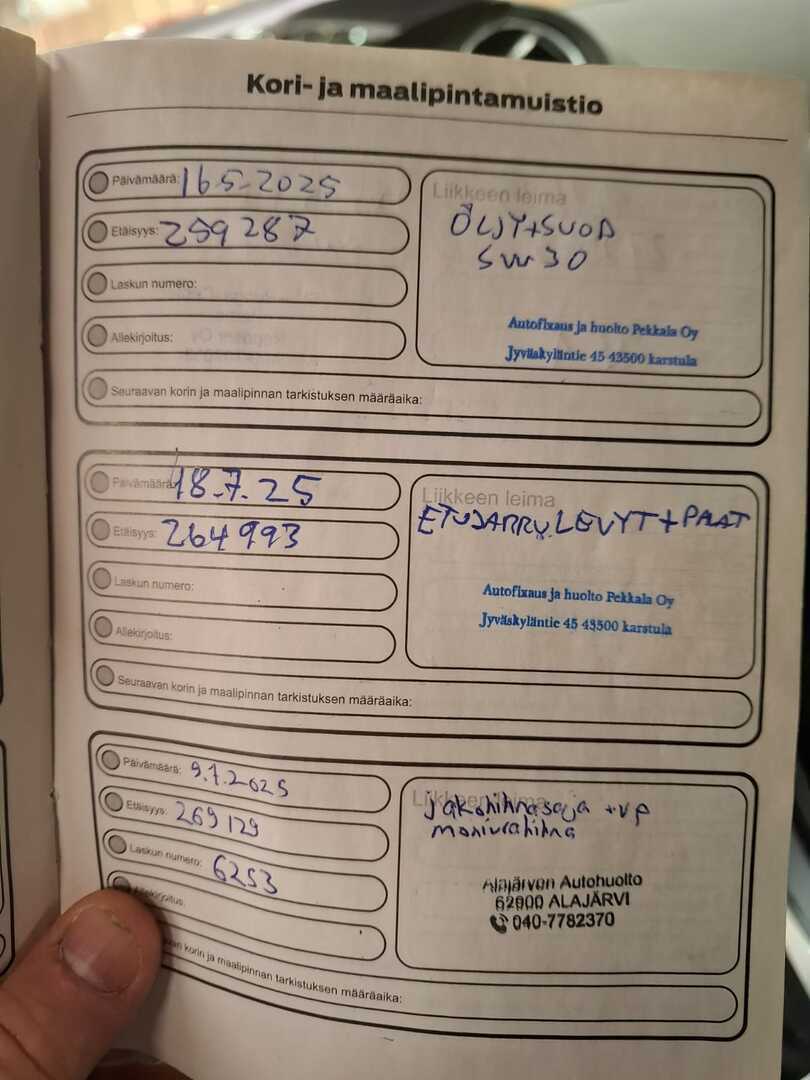 Kori- ja maalipintamuistio
Päivämäärä: 16.5-2025
Etäisyys: 259 287
Laskun numero:
Allekirjoitus:
Liikkeen leima
ÖLJY+SUOD
5W30
Autofixaus ja huolto Pekkala Oy
Jyväskyläntie 45 43500 karstula
Seuraavan korin ja maalipinnan tarkistuksen määräaika:
Päivämäärä: 18.7.25
Etäisyys: 264 993
Laskun numero:
Allekirjoitus:
Liikkeen leima
ETUJARRULEVYT+PALAT
Autofixaus ja huolto Pekkala Oy
Jyväskyläntie 45 43500 karstula
Seuraavan korin ja maalipinnan tarkistuksen määräaika:
Päivämäärä: 9.7.2025
Etäisyys: 269 129
Laskun numero: 6253
Allekirjoitus:
Liikkeen leima
jakohihnasarja +vp
moniurahihna
Alajärven Autohuolto
62900 ALAJÄRVI
040-7782370
korin ja maalipinnan tarkistuksen määräaika: